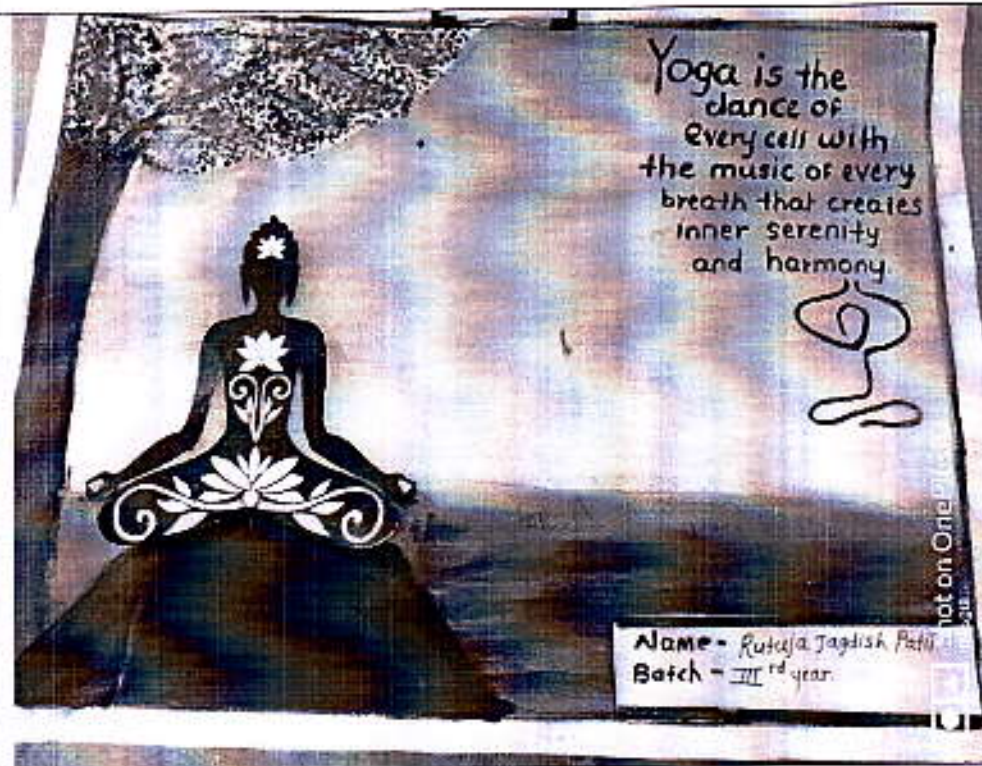 Yoga is the
dance of
Every cell with
the music of every
breath that creates
inner serenity
and harmony
Name - Rutuja Jagdish Patil
Batch - III rd year
hot on One